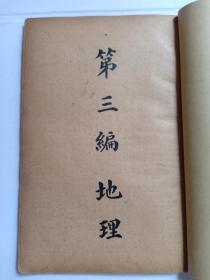 第三編地理